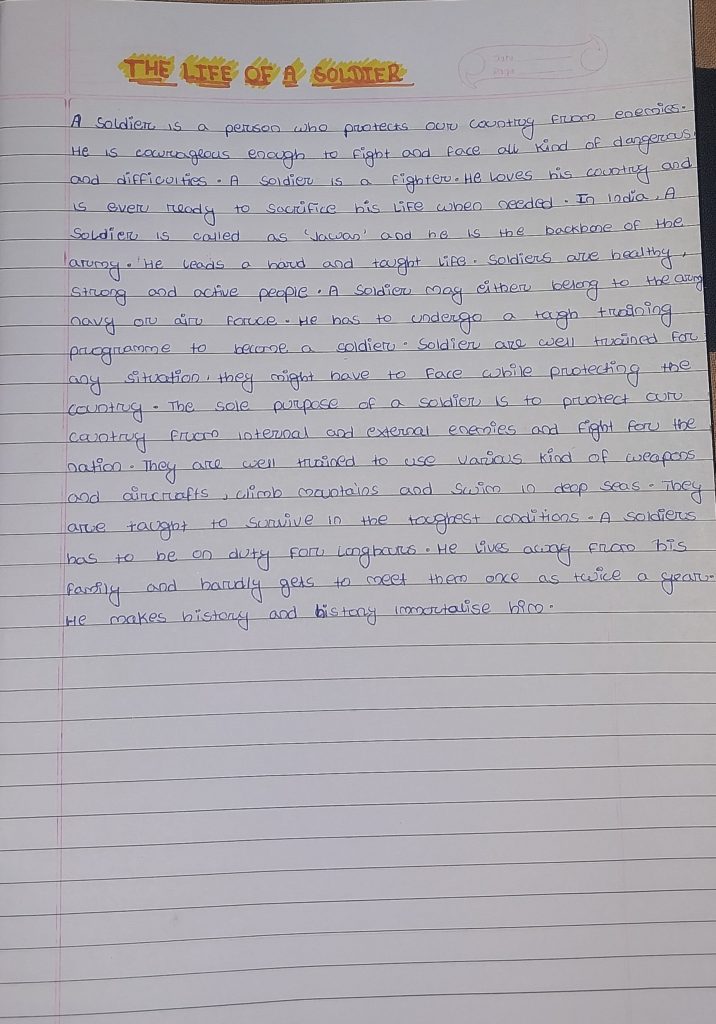 THE LIFE OF A SOLDIER
A soldier is a person who protects our country from enemies.
He is courageous enough to fight and face all kind of dangerous
and difficulties. A soldier is a fighter. He loves his country and
is ever ready to sacrifice his life when needed. In India, A
Soldier is called as 'Jawan' and he is the backbone of the
army. He leads a hard and taught life. Soldiers are healthy,
strong and active people. A soldier may either belong to the army
navy or air force. He has to undergo a tough training
programme to become a soldier. Soldier are well trained for
any situation, they might have to face while protecting the
country. The sole purpose of a soldier is to protect our
country from internal and external enemies and fight for the
nation. They are well trained to use various kind of weapons
and aircrafts, climb mountains and swim in deep seas. They
are taught to survive in the toughest conditions. A soldiers
has to be on duty for longhours. He lives away from his
family and hardly gets to meet them once as twice a year.
He makes history and history immortalise him.